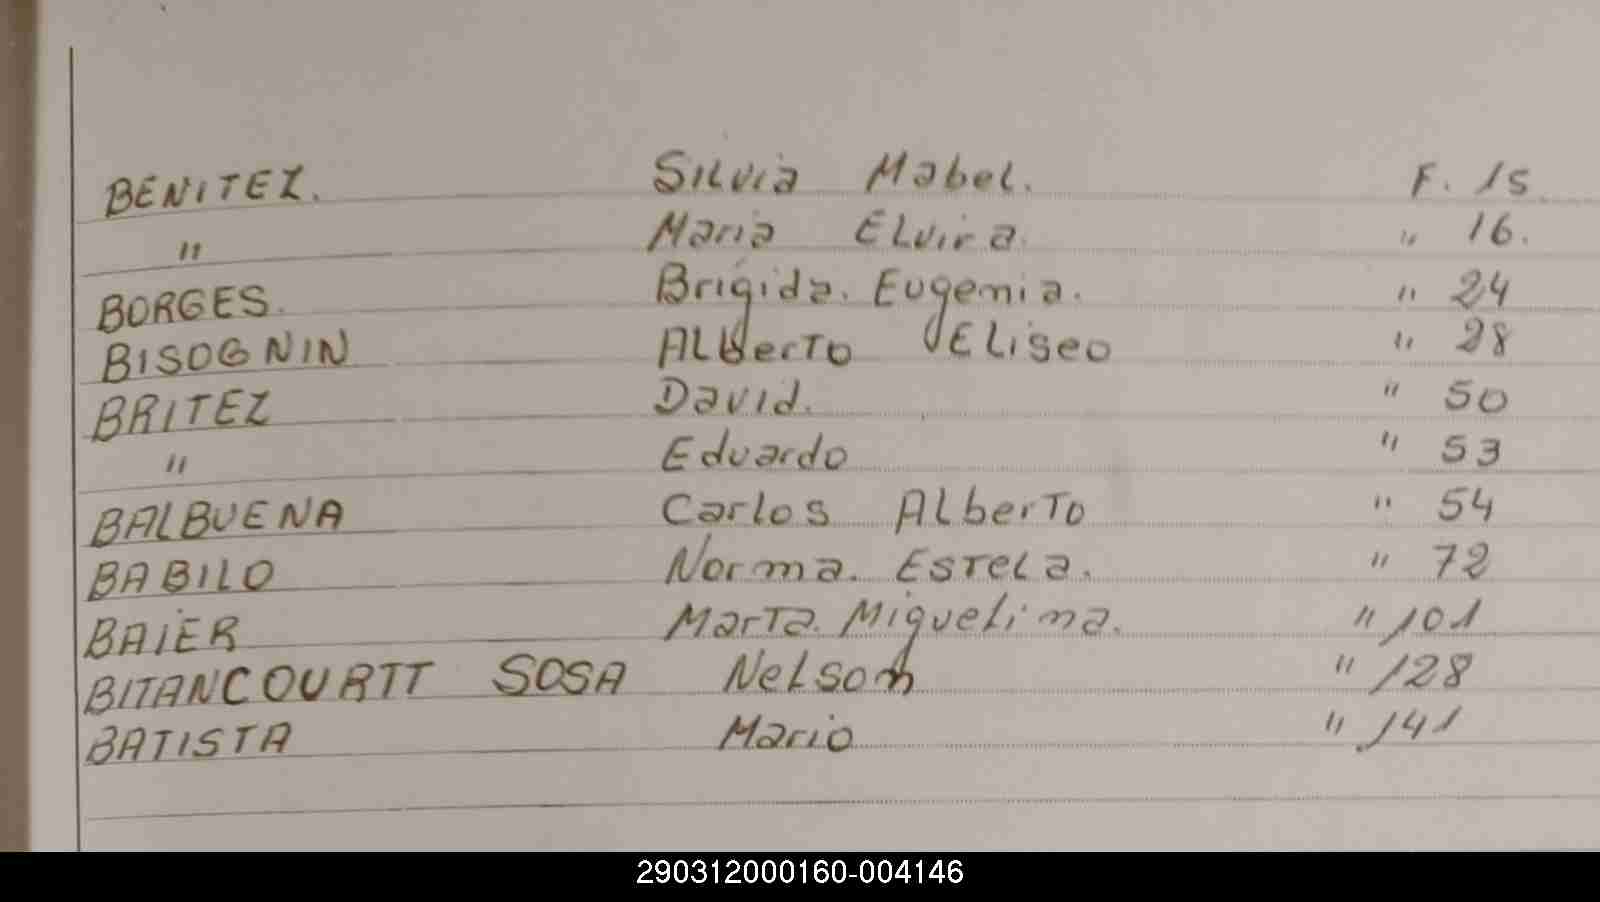 BENITEZ. Silvia Mabel. F. 15
" Maria Elvira. " 16.
BORGES. Brigida. Eugenia. " 24
BISOGNIN Alberto Eliseo " 28
BRITEZ David. " 50
" Eduardo " 53
BALBUENA Carlos Alberto " 54
BABILO Norma. Estela. " 72
BAIER Marta. Miguelina. " 101
BITANCOURTT SOSA Nelson " 128
BATISTA Mario " 141
290312000160-004146